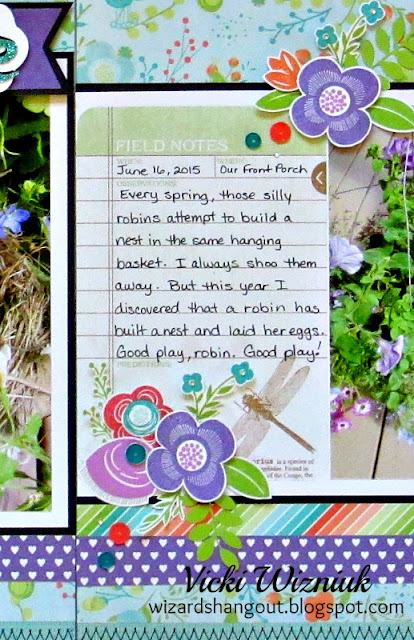 FIELD NOTES
WHEN: WHERE:
June 16, 2015 Our Front Porch
OBSERVATIONS:
Every spring, those silly
robins attempt to build a
nest in the same hanging
basket. I always shoo them
away. But this year I
discovered that a robin has
built a nest and laid her eggs.
Good play, robin. Good play!
PREDICTIONS:
is a species of
Found in
of the Congo, the
Vicki Wizniuk
wizardshangout.blogspot.com